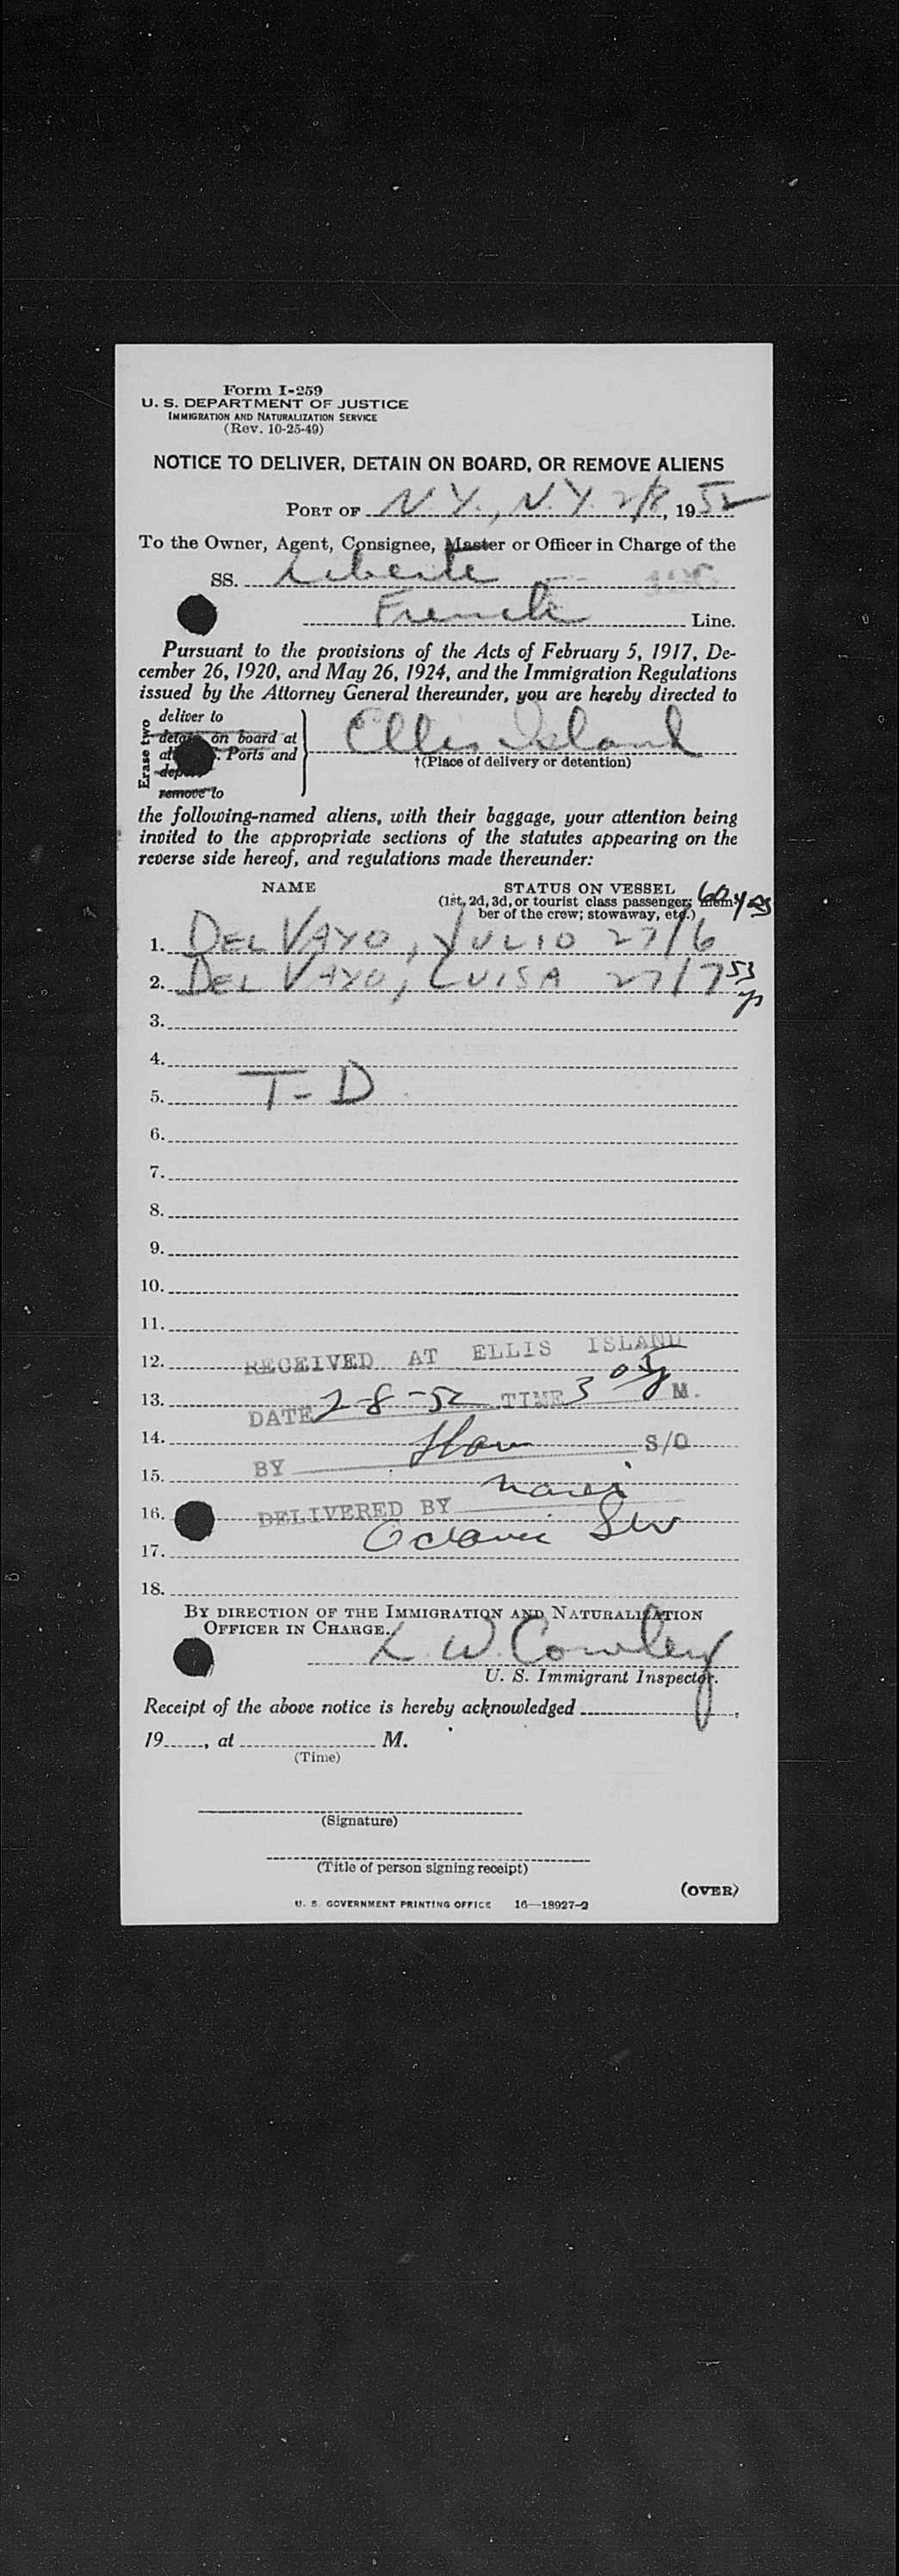 Form I-259
U. S. DEPARTMENT OF JUSTICE
IMMIGRATION AND NATURALIZATION SERVICE
(Rev. 10-25-49)
NOTICE TO DELIVER, DETAIN ON BOARD, OR REMOVE ALIENS
PORT OF N.Y., N.Y. 2/8, 1952
To the Owner, Agent, Consignee, Master or Officer in Charge of the
SS. Liberte
French Line.
Pursuant to the provisions of the Acts of February 5, 1917, De-
cember 26, 1920, and May 26, 1924, and the Immigration Regulations
issued by the Attorney General thereunder, you are hereby directed to
Erase two
deliver to
detain on board at
Ports and
remove to
Ellis Island
†(Place of delivery or detention)
the following-named aliens, with their baggage, your attention being
invited to the appropriate sections of the statutes appearing on the
reverse side hereof, and regulations made thereunder:
NAME
STATUS ON VESSEL
(1st, 2d, 3d, or tourist class passenger; mem- 60 yrs
ber of the crew; stowaway, etc.)
1. DEL VAYO, JULIO 27/6
2. DEL VAYO, LUISA 27/7 53
3.
4.
5. T-D
6.
7.
8.
9.
10.
11.
12. RECEIVED AT ELLIS ISLAND
13. DATE 2-8-52 TIME 3 05 M.
14. S/O
15. BY
16. DELIVERED BY
17.
18.
BY DIRECTION OF THE IMMIGRATION AND NATURALIZATION
OFFICER IN CHARGE.
L. W. Cowley
U. S. Immigrant Inspector.
Receipt of the above notice is hereby acknowledged ,
19 , at M.
(Time)
(Signature)
(Title of person signing receipt)
(OVER)
U. S. GOVERNMENT PRINTING OFFICE 16—18927-2